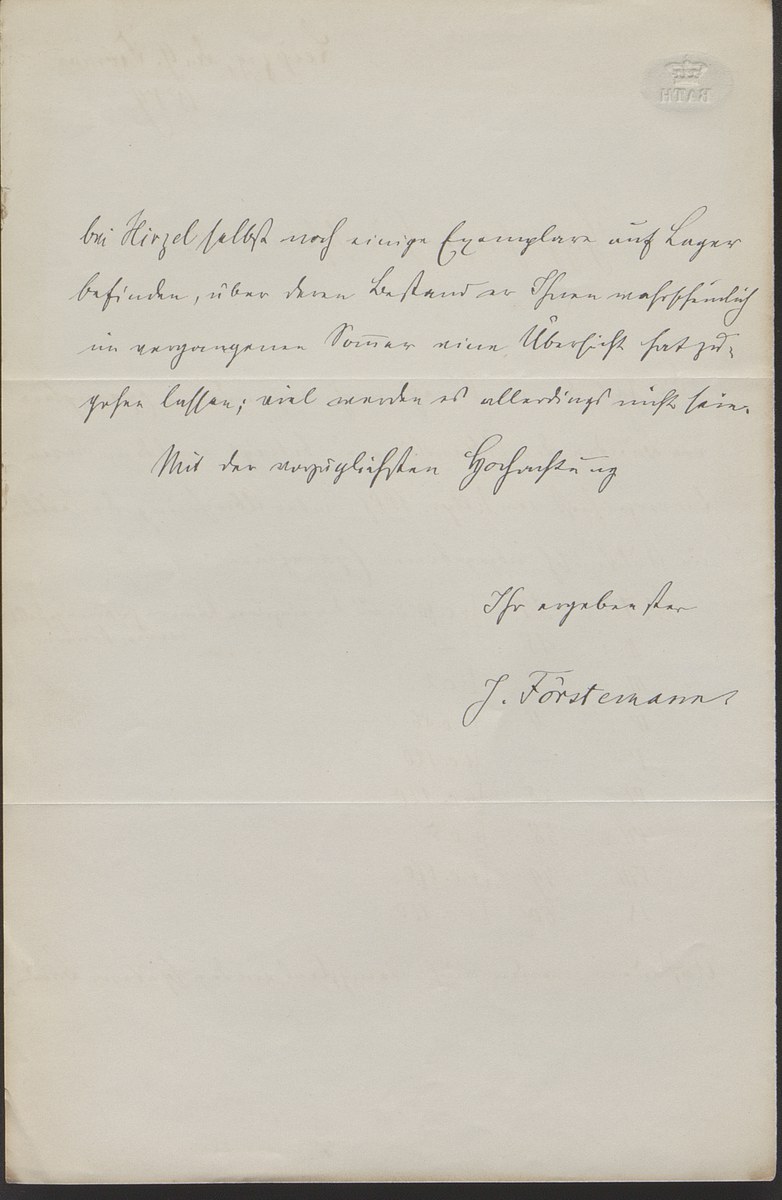 BATH
bei Hirzel selbst noch einige Exemplare auf Lager
befinden, über deren Bestand er Ihnen wahrscheinlich
im vergangenen Som̅er eine Übersicht hat zu-
gehen lassen; viel werden es allerdings nicht sein.
Mit der vorzüglichsten Hochachtung
Ihr ergebenster
J. Förstemann